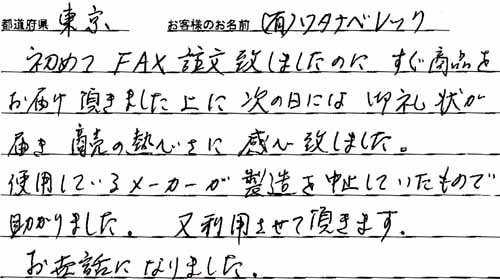 都道府県 東京 お客様のお名前 (有)ワタナベレック
初めて FAX 注文致しましたのに すぐ商品を
お届け頂きました上に 次の日には 御礼状が
届き 商売の熱心さに 感心致しました。
使用しているメーカーが 製造を中止していたもので
助かりました。 又利用させて頂きます。
お世話になりました。